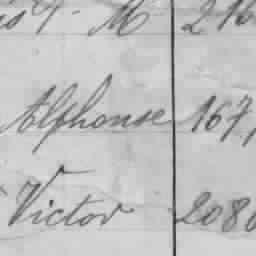 M 216
Alphonse 167,
Victor 2080